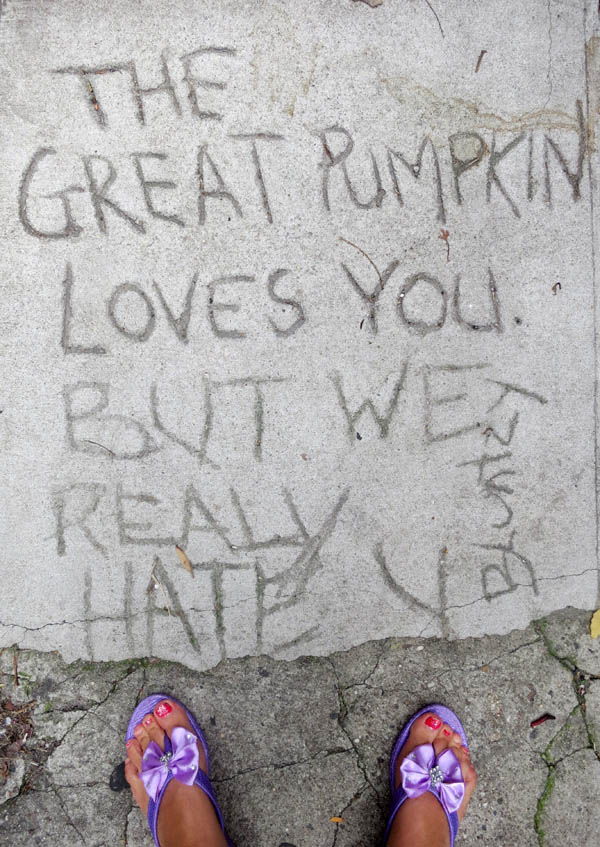 THE
GREAT PUMPKIN
LOVES YOU.
BUT WE
REALY
HATE